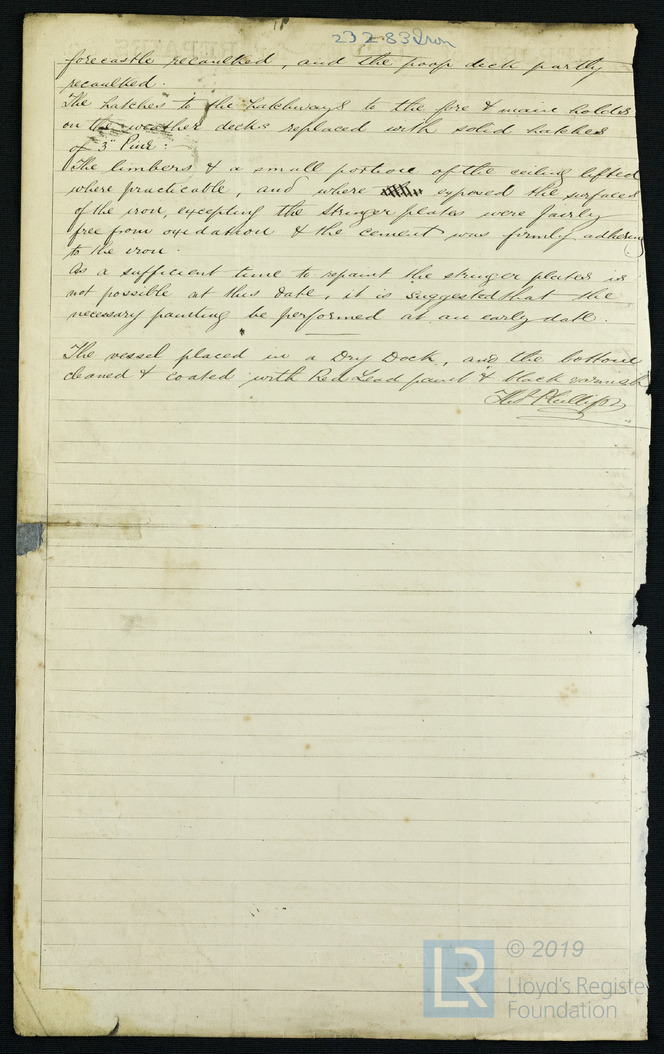 23283 Iron
forecastle recaulked, and the poop deck partly
recaulked.
The hatches to the hatchways to the fore & main holds
on the weather decks replaced with solid hatches
of 3" Pine:
The limbers & a small portion of the ceiling lifted
where practicable, and where exposed the surfaces
of the iron, excepting the stringer plates were fairly
free from oxidation & the cement was firmly adhering
to the iron.
As a sufficient time to repaint the stringer plates is
not possible at this date, it is suggested that the
necessary painting be performed at an early date.
The vessel placed in a Dry Dock, and the bottom
cleaned & coated with Red Lead paint & black varnish
Thos Phillips
LR
© 2019
Lloyd's Registe
Foundation